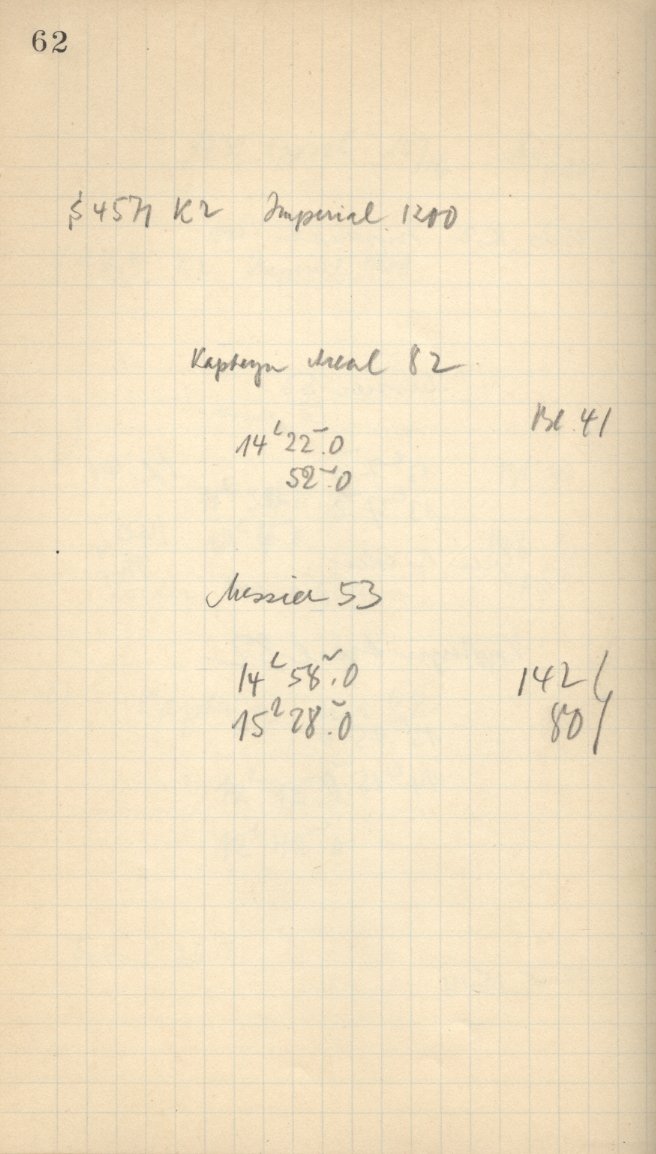 62
S 4571 K2 Imperial 1200
Kapteyn Areal 82
Bl. 41
14ʰ22ᵐ.0
52ᵐ.0
Messier 53
14ʰ58ᵐ.0 142
15ʰ28ᵐ.0 80